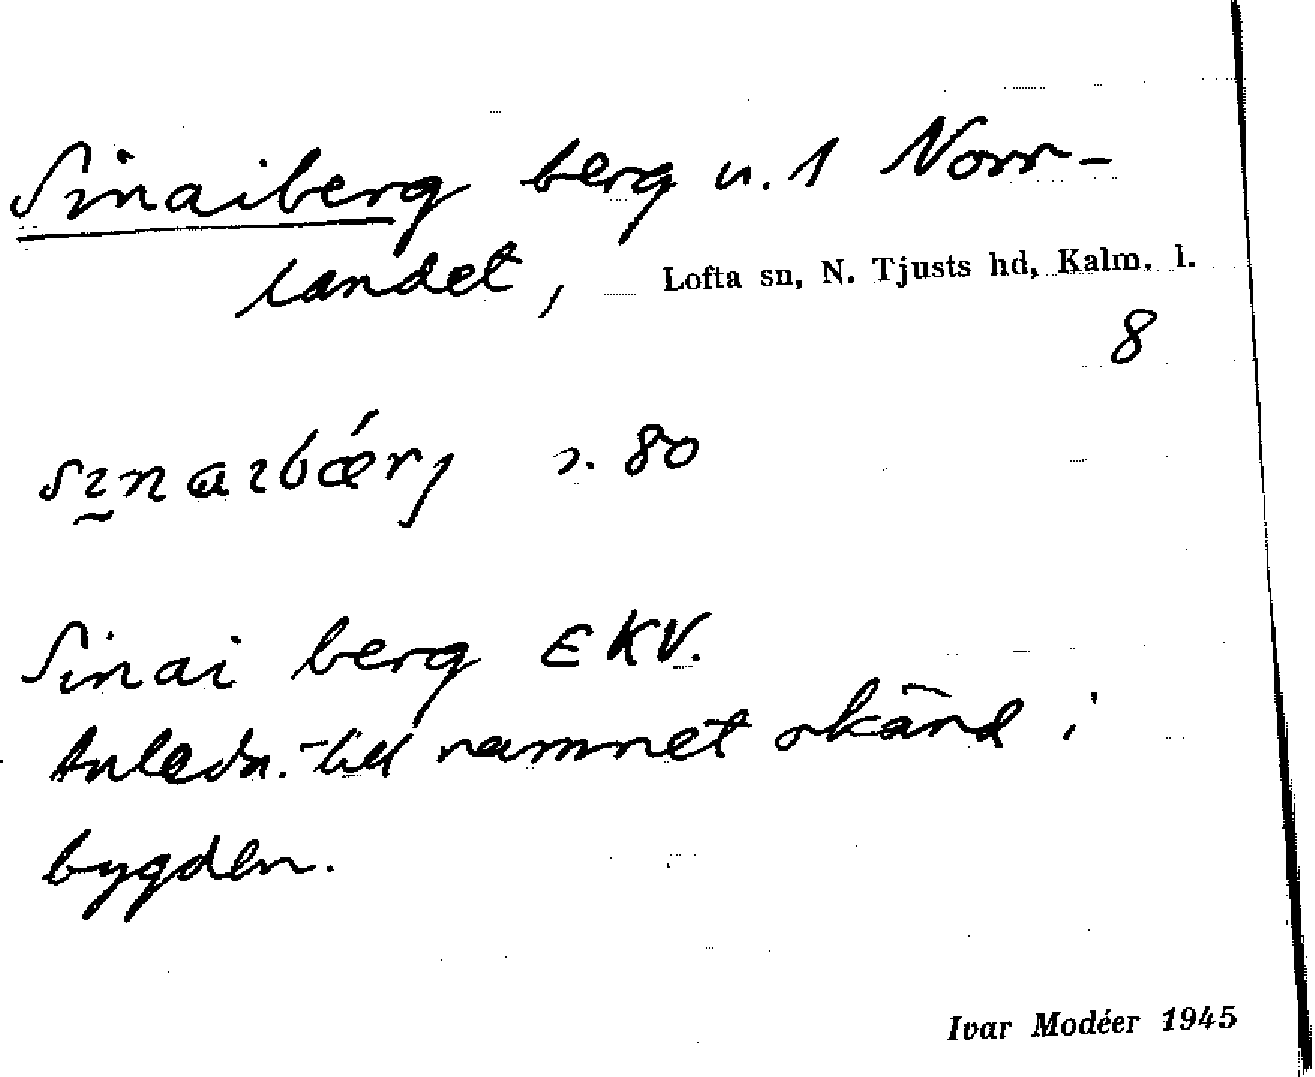 Sinaiberg berg u. 1 Norr-
landet, Lofta sn, N. Tjusts hd, Kalm. l.
8
s. 80
Sinai berg EKV.
Anledn. till namnet okänd i
bygden.
Ivar Modéer 1945